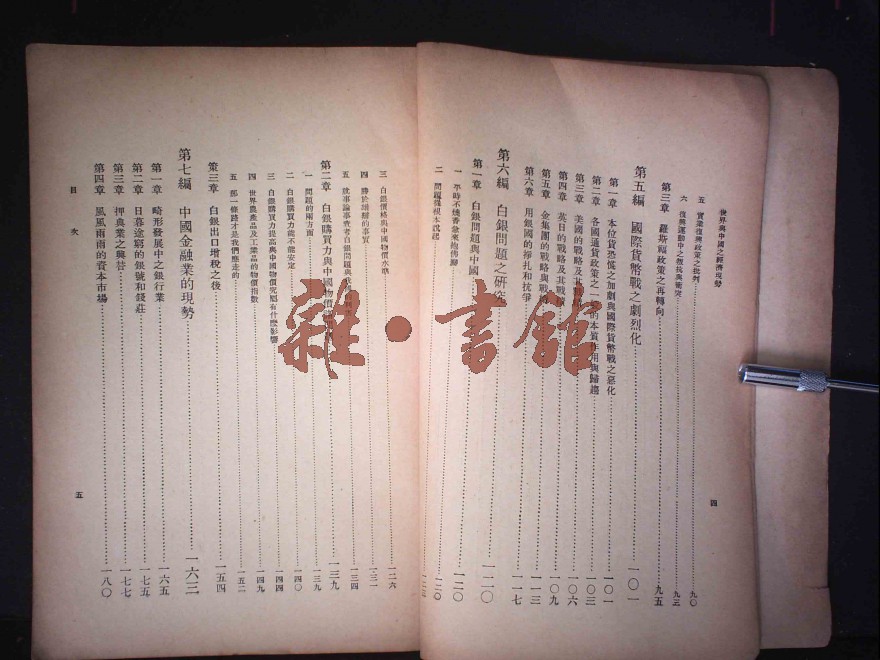 世界與中國之經濟現勢
五 實業復興政策之批判 九〇
六 復興運動中之抵抗與衝突 九三
第三章 羅斯福政策之再轉向 九五
第五編 國際貨幣戰之劇烈化 一〇一
第一章 本位貨恐慌之加劇與國際貨幣戰之惡化 一〇一
第二章 各國通貨政策之一 的本質作用與歸趨 一〇三
第三章 美國的戰略及其 一〇六
第四章 英日的戰略及其戰 一〇九
第五章 金集團的戰略與戰 一一三
第六章 用銀國的掙扎和抗爭 一一七
第六編 白銀問題之研究 一二〇
第一章 白銀問題與中國 一二〇
一 平時不燒香急來抱佛腳 一二〇
二 問題從根本說起
四
三 白銀價格與中國物價水準 一二六
四 勝於雄辯的事實 一三一
五 就事論事
白銀問題與 一三四
第二章 白銀購買力與中國物價 一三九
一 問題的兩方面 一三九
二 白銀購買力能不能安定 一四〇
三 白銀購買力提高與中國物價究竟有什麼影響 一四四
四 世界農產品及工業品的物價指數 一四九
五 那一條路才是我們應走的 一五二
第三章 白銀出口增稅之後 一五四
第七編 中國金融業的現勢 一六三
第一章 畸形發展中之銀行業 一六五
第二章 日暮途窮的銀號和錢莊 一七五
第三章 押典業之興替 一七七
第四章 風風雨雨的資本市場 一八〇
目 次
五
雜·書館